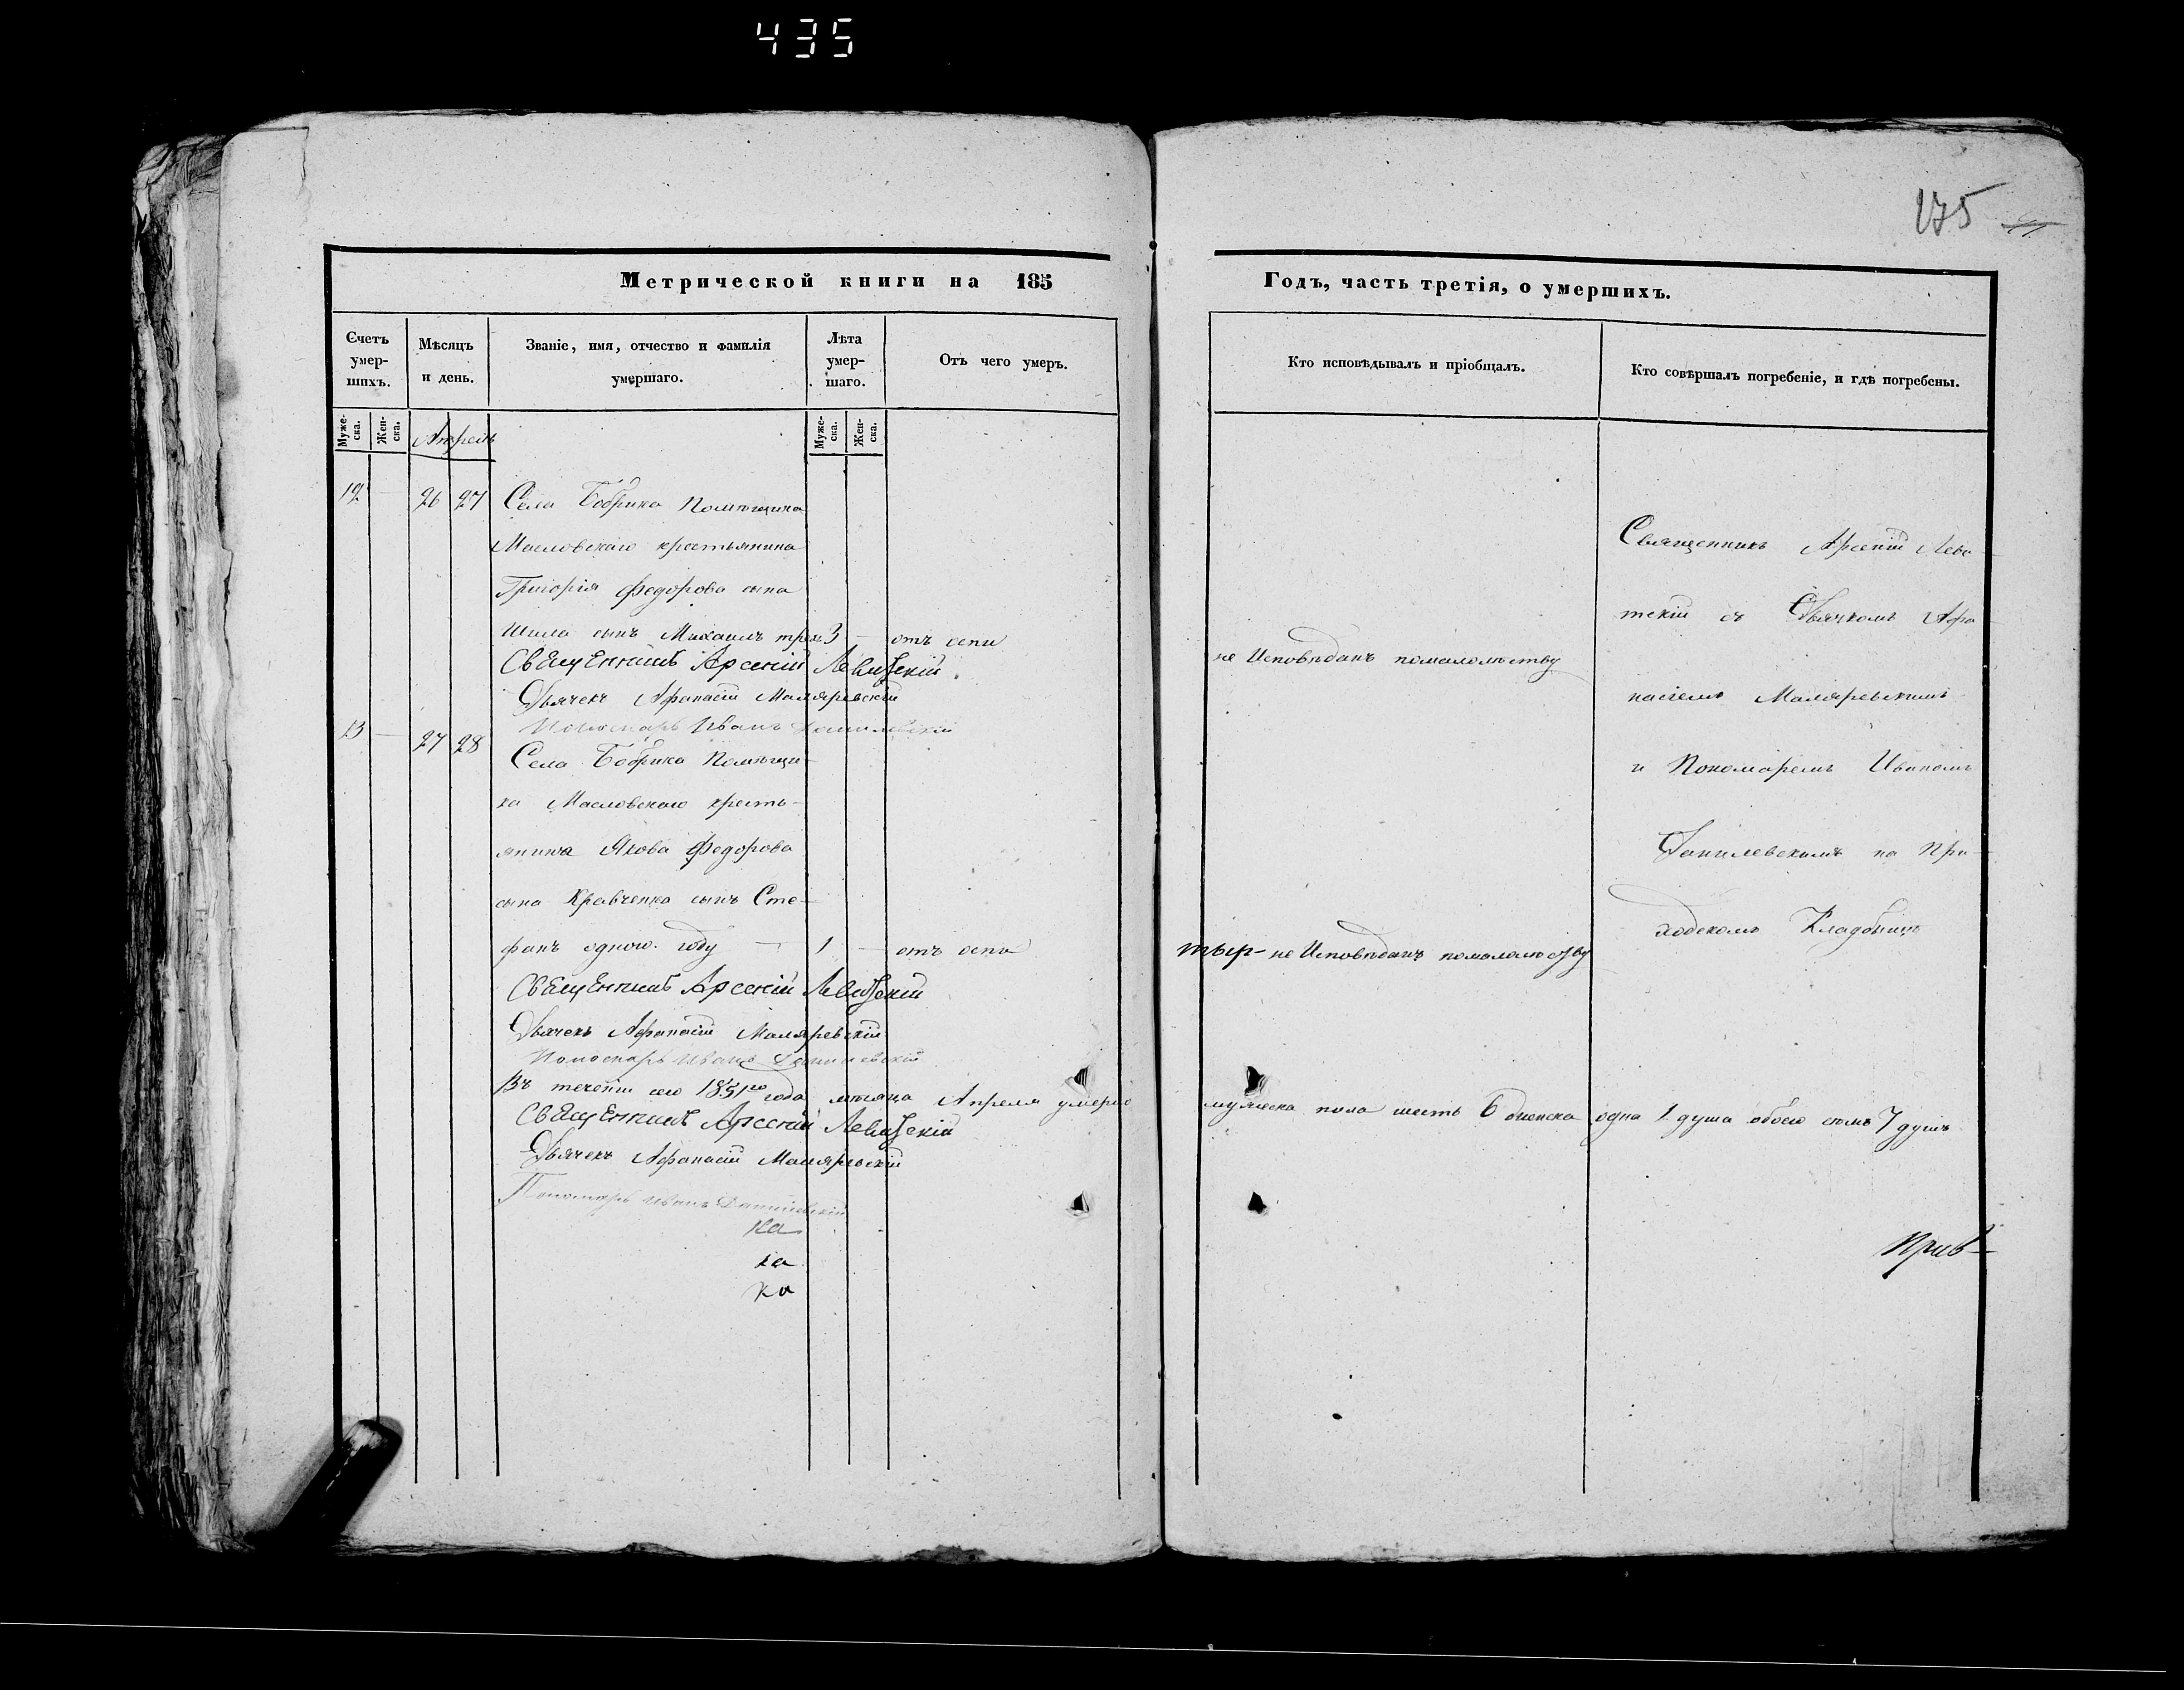 435
175
Метрической книги на 185
Годъ, часть третія, о умершихъ.
Счетъ умер-шихъ.
Мѣсяцъ и день.
Званіе, имя, отчество и фамилія умершаго.
Лѣта умер-шаго.
Отъ чего умеръ.
Кто исповѣдывалъ и пріобщалъ.
Кто совѣршалъ погребеніе, и гдѣ погребены.
Муже-ска.
Жен-ска.
Апрель
Муже-ска.
Жен-ска.
12 — 26 27 Села Бобрика Помѣщика
Масловскаго крестьянина
Григорія Федорова сына
Шила сынъ Михаилъ трех. 3 — отъ оспи
не Исповѣданъ помалолѣтству
Священникъ Арсеній Левицкій
Дьячекъ Афанасій Маляревскій
Пономарь Иванъ Данилевскій
13 — 27 28
Села Бобрика Помѣщи-
ка Масловскаго кресть-
янина Якова Федорова
сына Кравченка сынъ Сте-
фанъ одного году — 1 — отъ оспи
тыр- не Исповѣданъ помалолѣтству
Священникъ Арсеній Левицкій
Дьячекъ Афанасій Маляревскій
Пономарь Иванъ Данилевскій
Священникъ Арсеній Леви-
тскій съ Дьячкомъ Афа-
насіемъ Маляревскимъ
и Пономаремъ Иваномъ
Данилевскимъ на При-
ходскомъ Кладбищѣ
Въ теченіи сего 1851го года мѣсяца Апреля умерло
мужеска пола шесть 6 женска одна 1 душа обоего 7 душъ
Священникъ Арсеній Левицкій
Дьячекъ Афанасій Маляревскій
Пономарь Иванъ Данилевскій
ка
ка
ка
Прив-